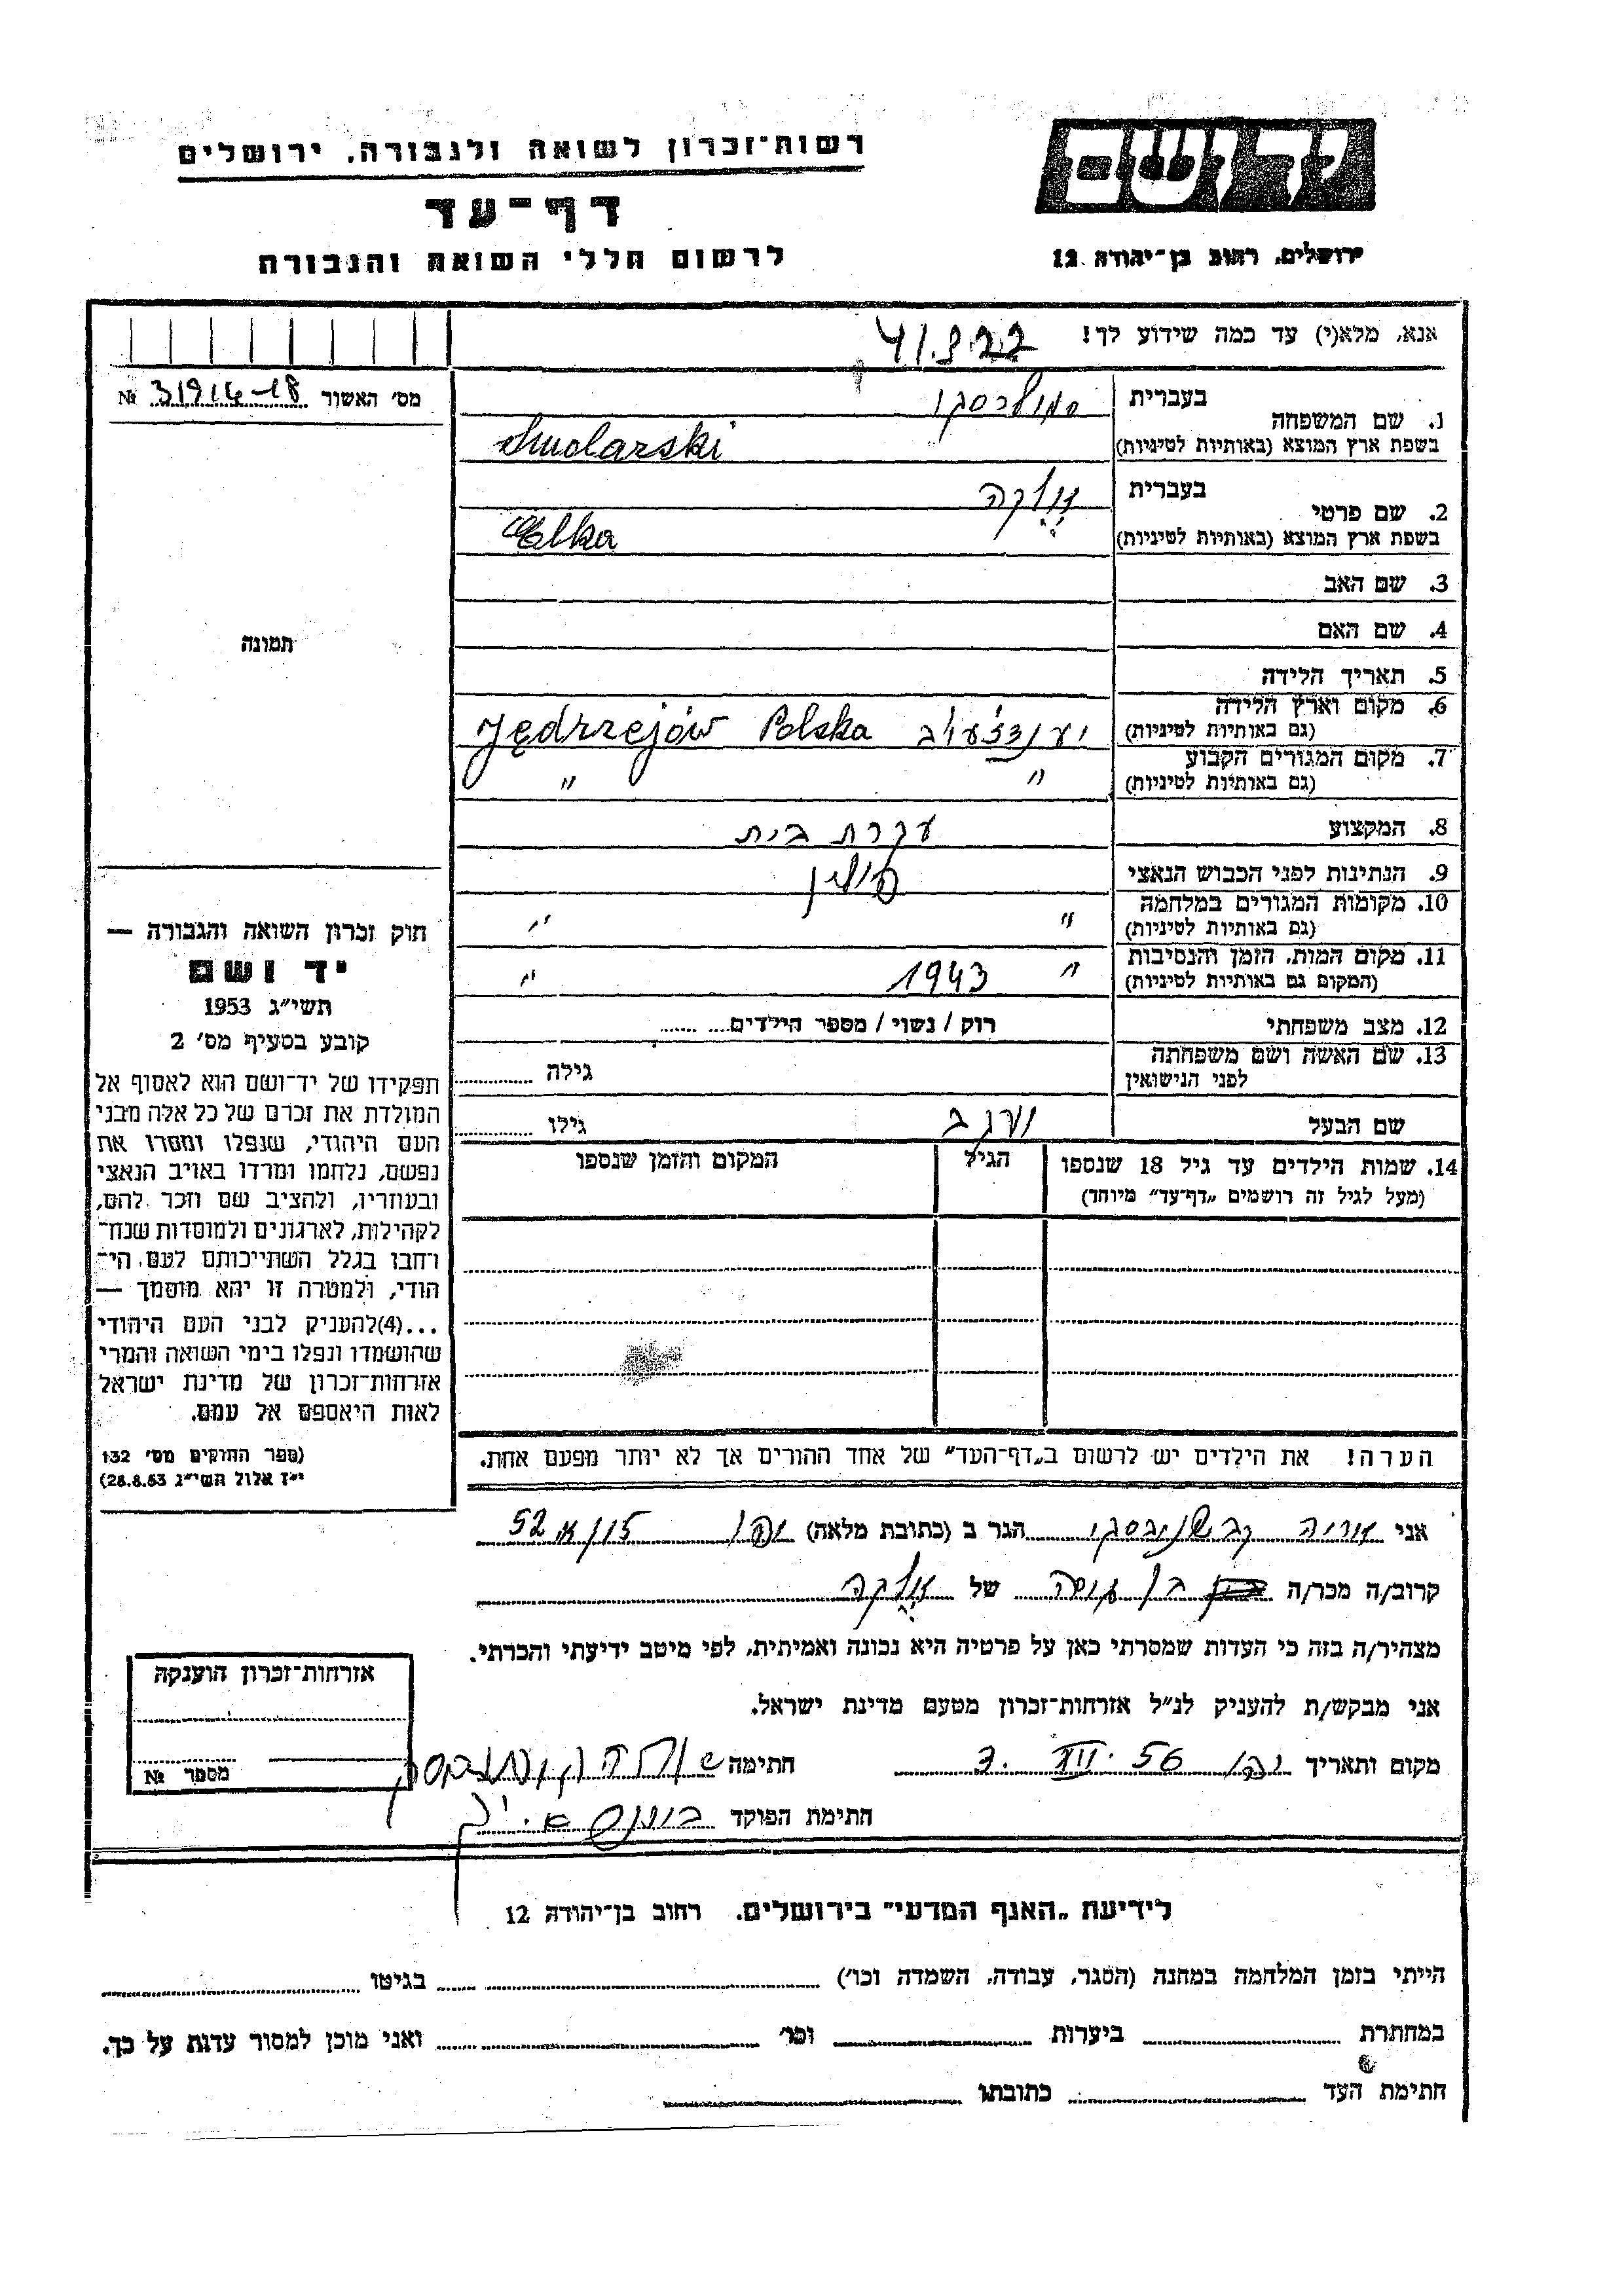 רשות-זכרון לשואה ולגבורה, ירושלים
דף-עד
לרשום חללי השואה והגבורה
יד ושם
ירושלים, רחוב בן-יהודה 12
אנא, מלא(י) עד כמה שידוע לך!
מס' האשור № 31916-18
1. שם המשפחה
בעברית סמולרסקי
בשפת ארץ המוצא (באותיות לטיניות) Smolarski
2. שם פרטי
בעברית אֶלקה
בשפת ארץ המוצא (באותיות לטיניות) Elka
3. שם האב
4. שם האם
5. תאריך הלידה
6. מקום וארץ הלידה
(גם באותיות לטיניות) Jędrzejów Polska
7. מקום המגורים הקבוע
(גם באותיות לטיניות) " "
8. המקצוע עקרת בית
9. הנתינות לפני הכבוש הנאצי פולין
10. מקומות המגורים במלחמה
(גם באותיות לטיניות) " "
11. מקום המות, הזמן והנסיבות
(המקום גם באותיות לטיניות) " 1943 "
12. מצב משפחתי רוק / נשוי / מספר הילדים
13. שם האשה ושם משפחתה
לפני הנישואין גילה
שם הבעל גילו
14. שמות הילדים עד גיל 18 שנספו
(מעל לגיל זה רושמים „דף-עד" מיוחד)
הגיל
המקום והזמן שנספו
הערה! את הילדים יש לרשום ב„דף-העד" של אחד ההורים אך לא יותר מפעם אחת.
תמונה
חוק זכרון השואה והגבורה —
יד ושם
תשי"ג 1953
קובע בסעיף מס' 2
תפקידו של יד-ושם הוא לאסוף אל
המולדת את זכרם של כל אלה מבני
העם היהודי, שנפלו ומסרו את
נפשם, נלחמו ומרדו באויב הנאצי
ובעוזריו, ולהציב שם וזכר להם,
לקהילות, לארגונים ולמוסדות שנח-
רחבו בגלל השתייכותם לעם הי-
הודי, ולמטרה זו יהא מוסמך —
...(4)להעניק לבני העם היהודי
שהושמדו ונפלו בימי השואה והמרי
אזרחות-זכרון של מדינת ישראל
לאות היאספם אל עמם.
(ספר החוקים מס' 132
י"ז אלול תשי"ג 28.8.53)
אני הגר ב (כתובת מלאה) 52
קרוב/ה מכר/ה של אֶלקה
מצהיר/ה בזה כי העדות שמסרתי כאן על פרטיה היא נכונה ואמיתית, לפי מיטב ידיעתי והכרתי.
אני מבקש/ת להעניק לנ"ל אזרחות-זכרון מטעם מדינת ישראל.
מקום ותאריך 56 חתימה
חתימת הפוקד
אזרחות-זכרון הוענקה
מספר №
לידיעת „האגף המדעי" בירושלים. רחוב בן-יהודה 12
הייתי בזמן המלחמה במחנה (הסגר, עבודה, השמדה וכו') בגיטו
במחתרת ביערות וכו' ואני מוכן למסור עדות על כך.
חתימת העד כתובתו